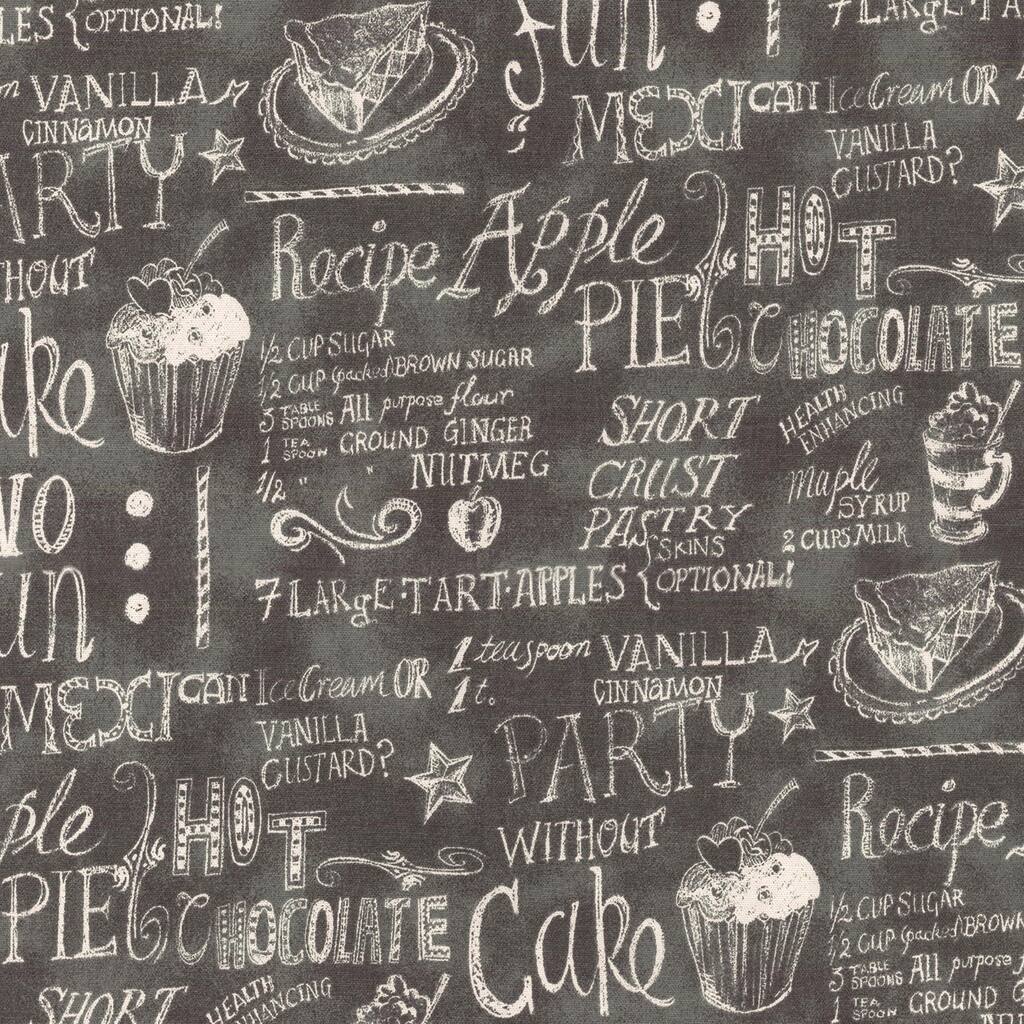 LES { OPTIONAL!
fun :
7 LARgE·TA
VANILLA
CINNAMON
MEXICAN Ice Cream OR
VANILLA
CUSTARD?
ARTY
HOUT
Recipe Apple
PIE
HOT
CHOCOLATE
ake
1/2 CUP SUGAR
1/2 CUP (packed) BROWN SUGAR
3 TABLE SPOONS All purpose flour
1 TEA SPOON GROUND GINGER
1/2 " " NUTMEG
SHORT
CRUST
PASTRY
HEALTH
ENHANCING
maple
SYRUP
2 CUPS MILK
NO
un :
7 LARgE·TART·APPLES { SKINS OPTIONAL!
1 teaspoon VANILLA
1 t. CINNAMON
MEXICAN Ice Cream OR
VANILLA
CUSTARD?
PARTY
WITHOUT
Cake
ple
PIE
HOT
CHOCOLATE
Recipe
1/2 CUP SUGAR
1/2 CUP (packed) BROWN
3 TABLE SPOONS All purpose
1 TEA SPOON GROUND
SHORT
HEALTH
ENHANCING